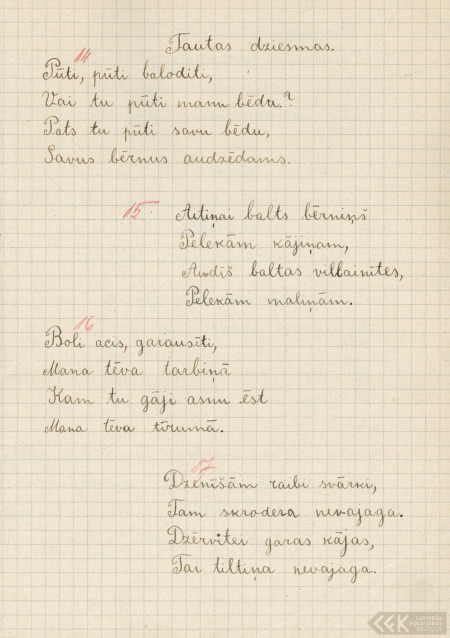 Tautas dziesmas.
14
Pūti, pūti baloditi,
Vai tu pūti manu bēdu?
Pats tu pūti savu bēdu,
Savus bērnus audzēdams.
15.
Aitiņai balts bērniņš
Pelekām kājiņam,
Audīš baltas villainītes,
Pelekām maliņām.
16
Boli acis, garausīti,
Mana tēva tarbiņā
Kam tu gāji asnu ēst
Mana tēva tīrumā.
17
Dzenīšām raibi svārki,
Tam skrodera nevajaga.
Dzērvitei garas kājas,
Tai tiltiņa nevajaga.
LATVIEŠU
FOLKLORAS
KRĀTUVE